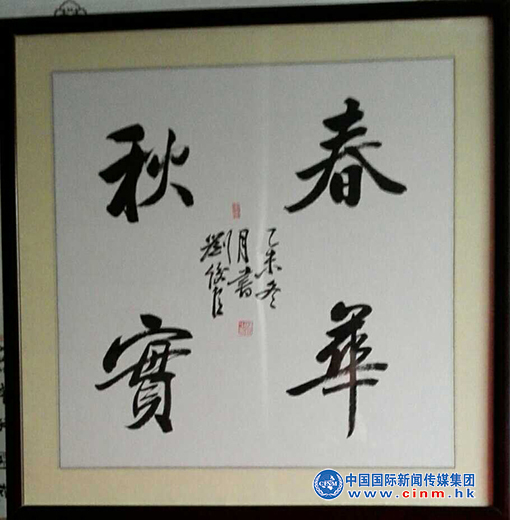 春華
秋實
乙未冬
月書
中国国际新闻传媒集团
www.cinm.hk